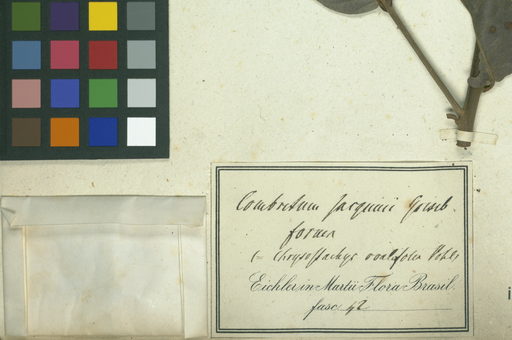 Combretum Jacquini Griseb.
forma
(= Chrysostachys ovalifolia Pohl)
Eichler in Martii Flora Brasil.
fasc. 42